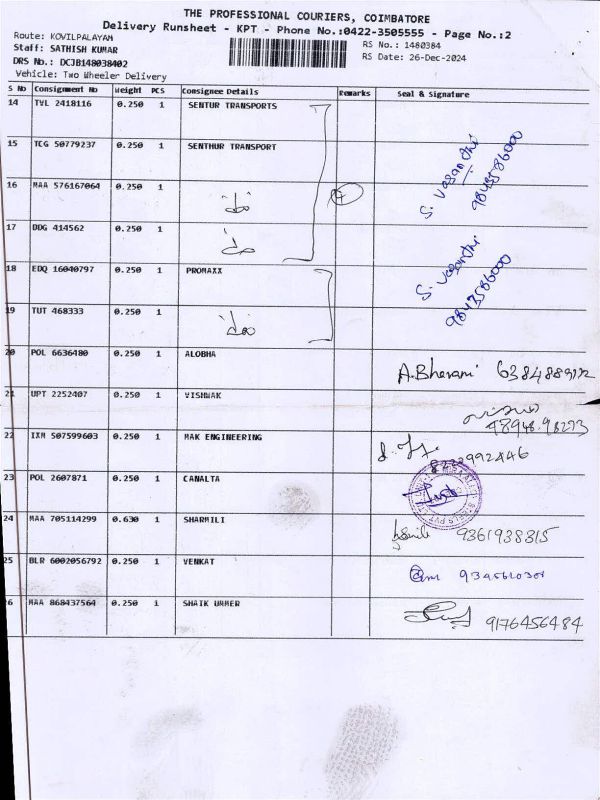 THE PROFESSIONAL COURIERS, COIMBATORE
Delivery Runsheet - KPT - Phone No.:0422-3505555 - Page No.:2
Route: KOVILPALAYAM
RS No.: 1480384
Staff: SATHISH KUMAR
RS Date: 26-Dec-2024
DRS No.: DCJB148038402
Vehicle: Two Wheeler Delivery
S No Consignment No Weight PCS Consignee Details Remarks Seal & Signature
14 TVL 2418116 0.250 1 SENTUR TRANSPORTS
15 TCG 50779237 0.250 1 SENTHUR TRANSPORT
S. Vasanthi
9843586000
16 MAA 576167064 0.250 1
17 DDG 414562 0.250 1
S. Vasanthi
9843586000
18 EDQ 16040797 0.250 1 PROMAXX
19 TUT 468333 0.250 1
20 POL 6636480 0.250 1 ALOBHA
A.Bherani
21 UPT 2252407 0.250 1 VISHWAK
22 IXM 507599603 0.250 1 MAK ENGINEERING
23 POL 2607871 0.250 1 CANALTA
24 MAA 705114299 0.630 1 SHARMILI
9361938315
25 BLR 6002056792 0.250 1 VENKAT
26 MAA 868437564 0.250 1 SHAIK UMMER
9176456484